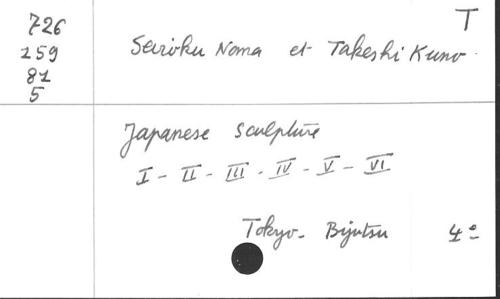 T
726
159
81
5
Seiroku Noma et Takeshi Kuno.
Japanese sculpture
I - II - III - IV - V - VI
Tokyo - Bijutsu 4º